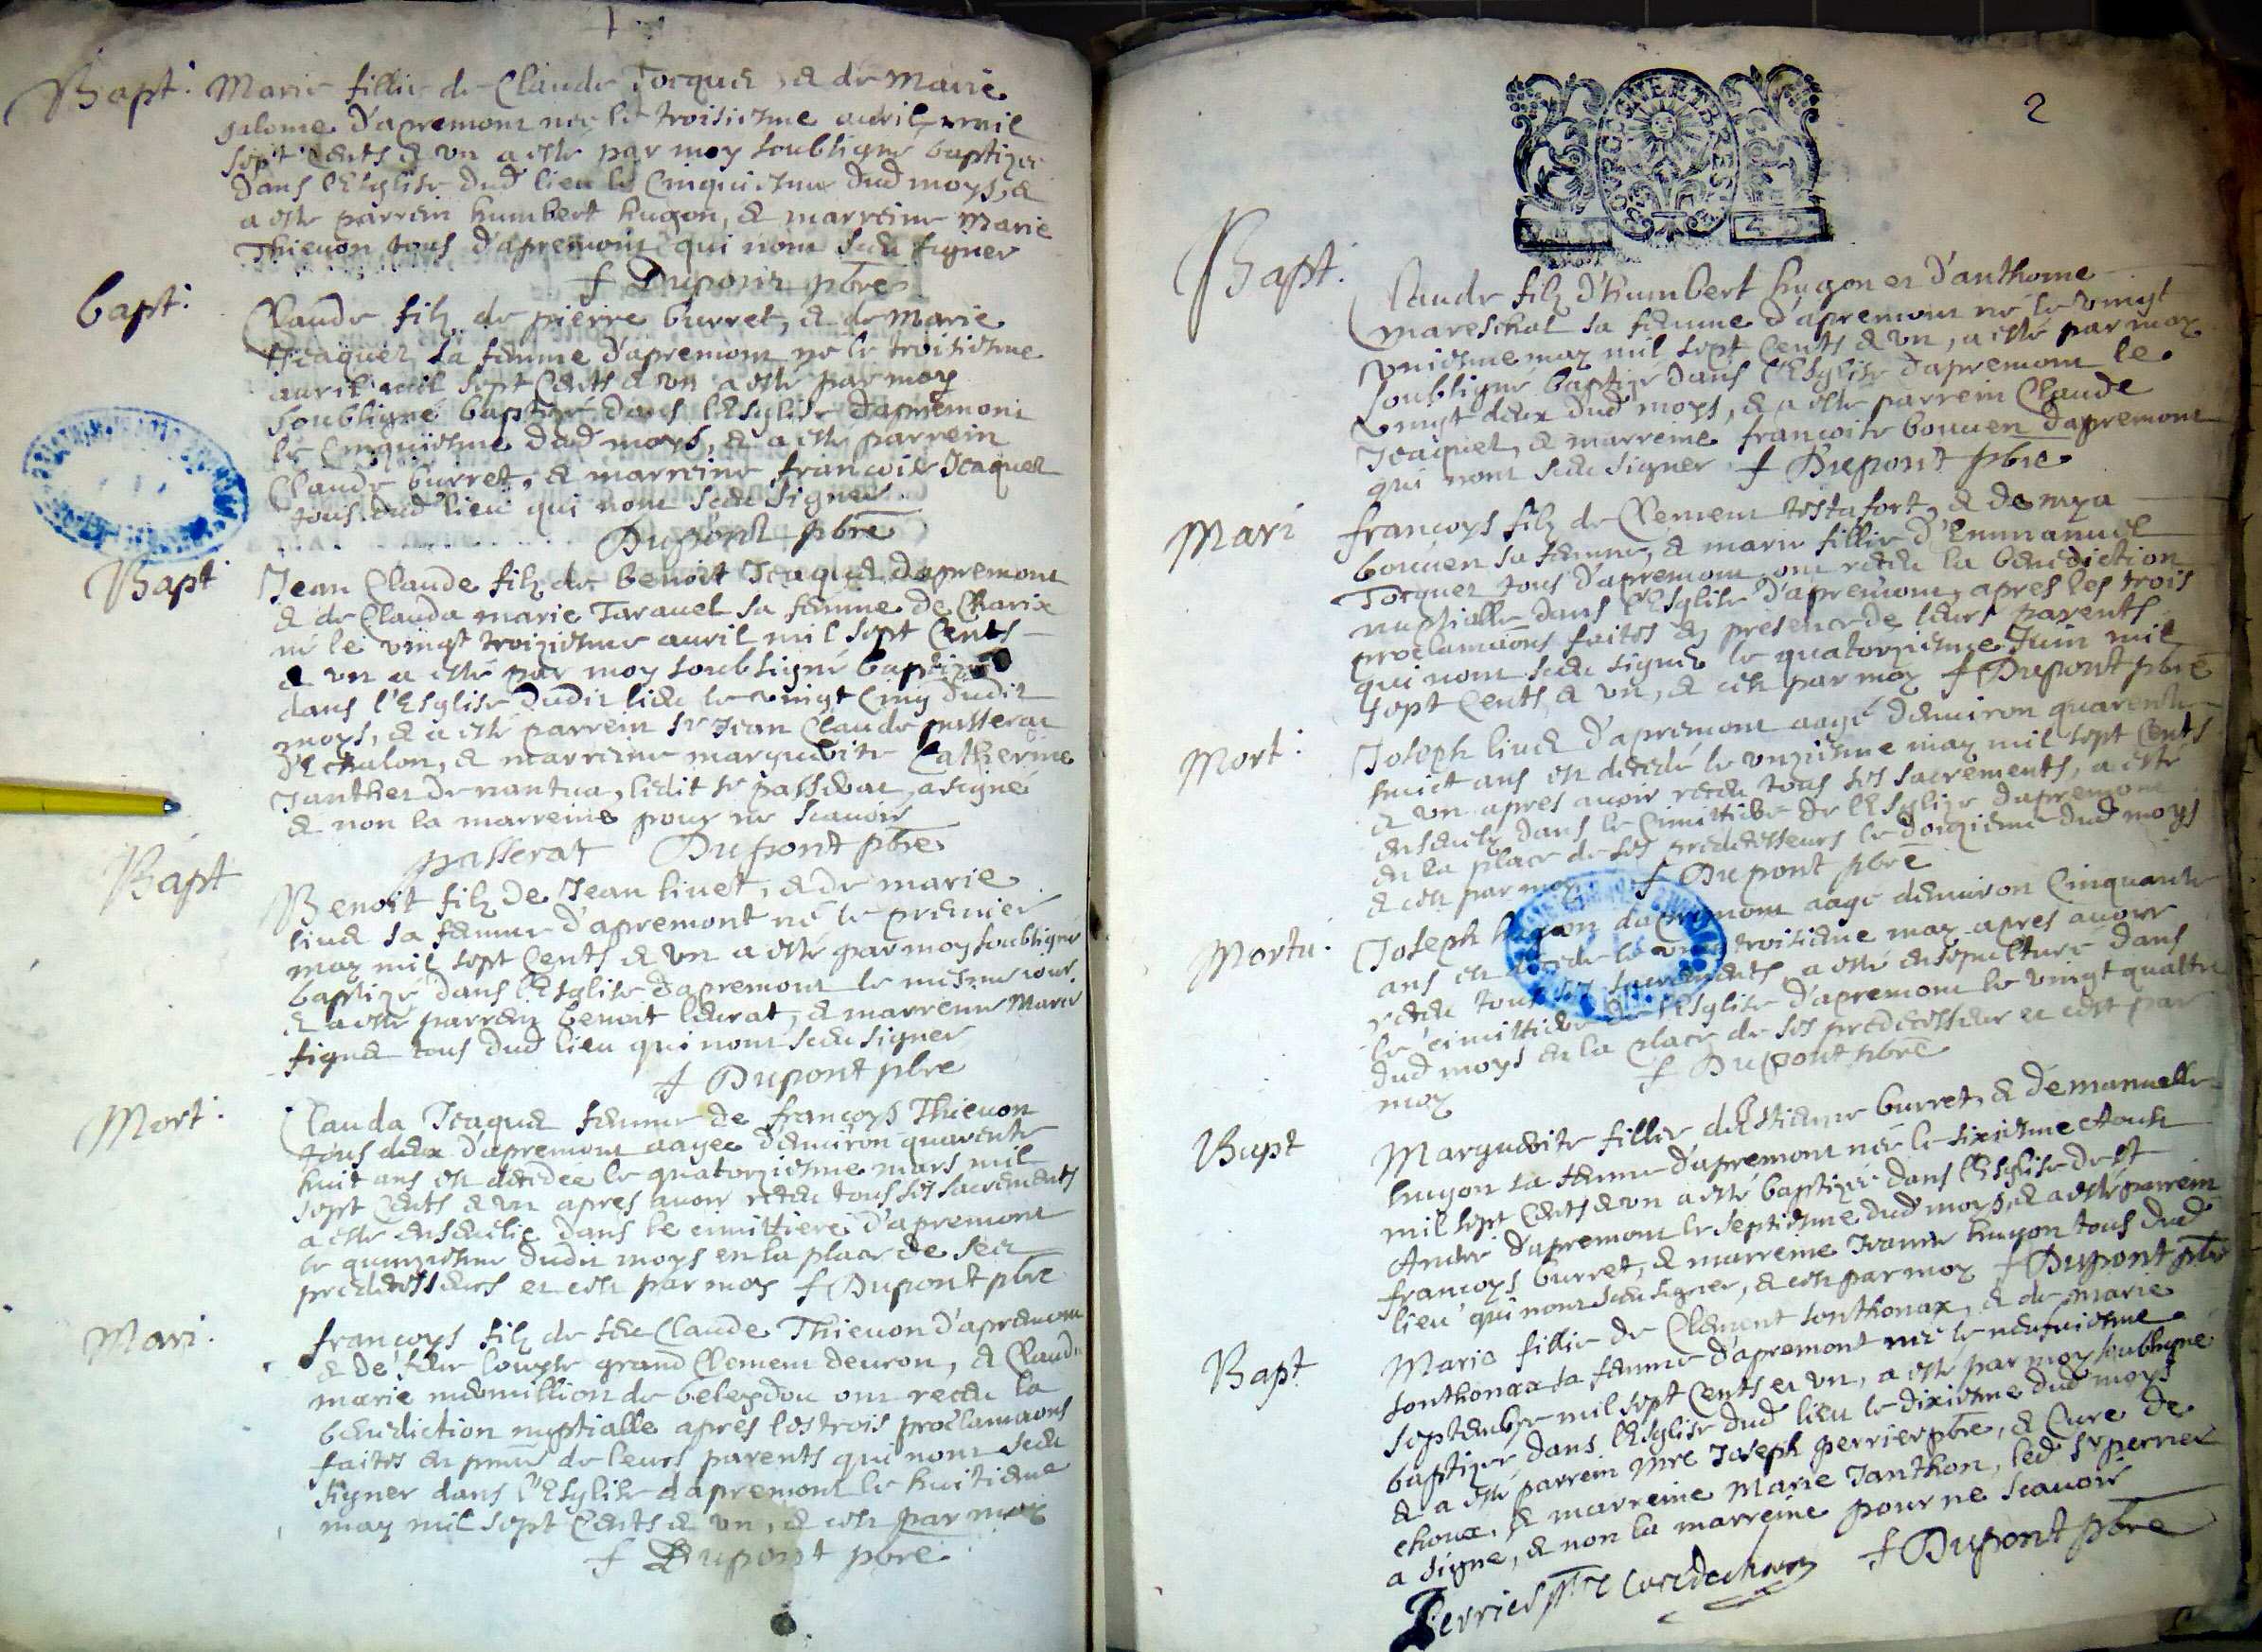 Bapt: Marie fillie de Claude Jocquet, & de Marie
Salome d'apremont née le troisiesme auril mil
sept cents & vn a esté par moy soubsigné baptizée
dans l'Esglise dud lieu le Cinquiesme dud moys, &
a esté parrein humbert hugon, & marreine Marie
Thieuon tous d'apremont qui nont sceu signer
f Dupont pbre
bapt: Claude filz de pierre burret, & de Marie
Jcaquet sa femme d'apremont né le troisiesme
auril mil sept Cents & vn a esté par moy
soubsigné baptizé dans l'Esglise d'apremont
le Cinquiesme dud moys, & a esté parrein
Claude burret, & marreine francoise Jcaquet
tous dud lieu qui nont sceu signer
Dupont pbre
Bapt Jean Claude filz de benoit Jcaquet dapremont
& de Clauda marie Tarauel sa femme de Charix
né le vingt troiziesme auril mil sept Cents
& vn a esté par moy soubsigné baptizé
dans l'Esglise dudit lieu le vingt Cinq dudit
moys, & a esté parrein sr Jean Claude passerat
d'Echalon, & marreine marguerite Catherine
Janthet de nantua, ledit sr passerat a signé
& non la marreine pour ne scauoir
passerat Dupont pbre
Bapt Benoit filz de Jean liuet, & de marie
liuet sa femme d'apremont né le premier
may mil sept Cents & vn a esté par moy soubsigné
baptizé dans l'Esglise d'apremont le mesme iour
& a esté parrein benoit leurat, & marreine Marie
signet tous dud lieu qui nont sceu signer
f Dupont pbre
Mort: Clauda Jcaquet femme de francoys Thieuon
tous deux d'apremont aagee denuiron quarente
huit ans est decedée le quatorziesme mars mil
sept Cents & vn apres auoir receu tous ses sacrements
a esté enseuelie dans le cimittiere d'apremont
le quinziesme dudit moys en la place de ses
predecesseurs et cest par moy f Dupont pbre
Mari: francoys filz de feu Claude Thieuon d'apremont
& de feue louyse grand Clement deuron, & Claud
marie mermillion de beleydou ont receu la
benediction nuptialle apres les trois proclamaons
faites en pnce de leurs parents qui nont sceu
signer dans l'Esglise dapremont le huitieme
may mil sept Cents & vn, & cest par moy
f Dupont pbre
2
Bapt: Claude filz d'humbert hugon et d'anthoine
mareschal sa femme d'apremont né le vingt
vniesme may mil sept Cents & vn, a esté par moy
soubsigné baptizé dans l'Esglise d'apremont le
vingt deux dud moys, & a esté parrein Claude
Jcaquet, & marreine francoise bouuen dapremont
qui nont sceu signer f Dupont pbre
Mari francoys filz de Clement testafort, & de mya
bouuen sa femme, & marie fillie d'Emmanuel
Jocquet tous d'apremont ont receu la benediction
nuptialle dans l'Esglise d'apremont, apres les trois
proclamaons faites en presence de leurs parents
qui nont sceu signer le quatorziesme Juin mil
sept Cents & vn, & cest par moy f Dupont pbre
Mort: Joseph liuet d'apremont aagé denuiron quarente
huict ans est decedé le vnziesme may mil sept Cents
& vn apres auoir receu tous ses sacrements, a esté
enseuely dans le Cimittiere de l'Esglize dapremont
en la place de ses predecesseurs le doizieme dud moys
& cest par moy f Dupont pbre
Mortu: Joseph hugon dapremont aagé denuiron Cinquante
ans est decede le vingt troisieme may apres auoir
receu tous ses sacrements a esté ensepulturé dans
le cimittiere de l'Esglise d'apremont le vingt quattre
dud moys en la place de ses predecesseur et cest par
moy f Dupont pbre
Bapt Marguerite fillie d'Estienne burret, & demanuelle
hugon sa femme d'apremont née le sixiesme Aoust
mil sept Cents & vn a esté baptizée dans l'Esglise de st
André d'apremont le septiesme dud moys, & a esté parrein
francoys burret, & marreine Jeanne hugon tous dud
lieu qui nont sceu signer, & cest par moy f Dupont pbre
Bapt Marie fillie de Clement sonthonax, & de marie
sonthonax sa femme d'apremont née le neufuiesme
septembre mil sept Cents et vn, a esté par moy soubsigné
baptizée dans l'Esglise dud lieu le dixiesme dud moys
& a esté parrein mre Joseph perrier pbre, & Cure de
choux, & marreine Marie Janthon, led sr perrier
a signe, & non la marreine pour ne scauoir
Perrier ptre curé de choux f Dupont pbre